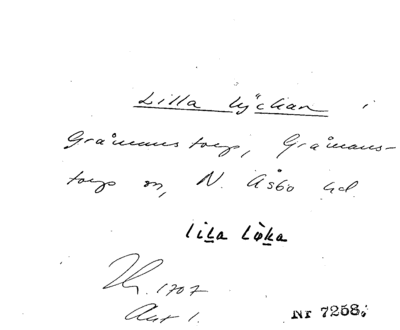 Lilla Lyckan i
Gråmanstorp, Gråmans-
torps sn, N. Åsbo hd.
lila løka
1707
Akt 1.
Nr 7258.